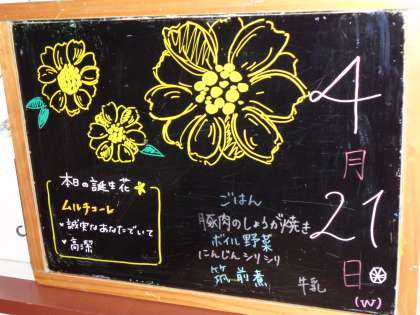 4
月
21
日
(W)
本日の誕生花
ムルチコーレ
・誠実なあなたでいて
・高潔
ごはん
豚肉のしょうが焼き
ボイル野菜
にんじんシリシリ
筑前煮
牛乳